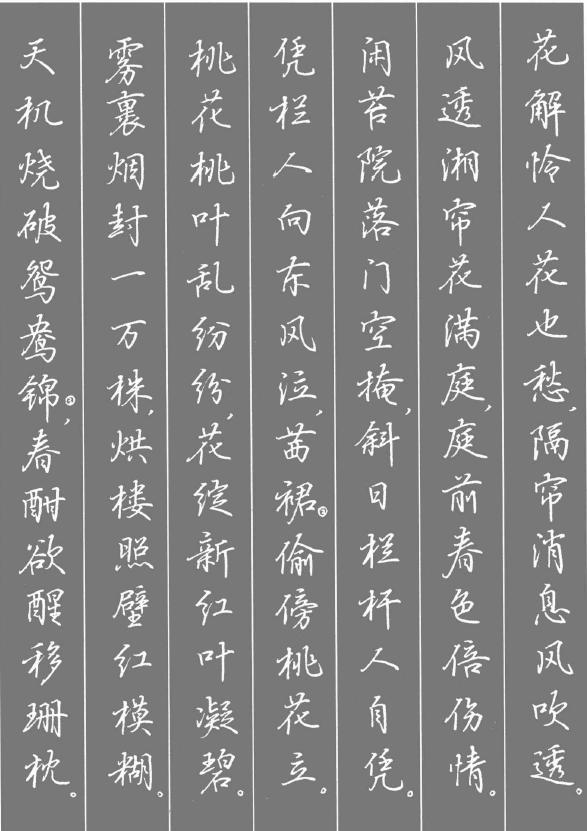 花解怜人花也愁,隔帘消息风吹透。
风透湘帘花满庭,庭前春色倍伤情。
闲苔院落门空掩,斜日栏杆人自凭。
凭栏人向东风泣,茜裙②偷傍桃花立。
桃花桃叶乱纷纷,花绽新红叶凝碧。
雾裹烟封一万株,烘楼照壁红模糊。
天机烧破鸳鸯锦③,春酣欲醒移珊枕。